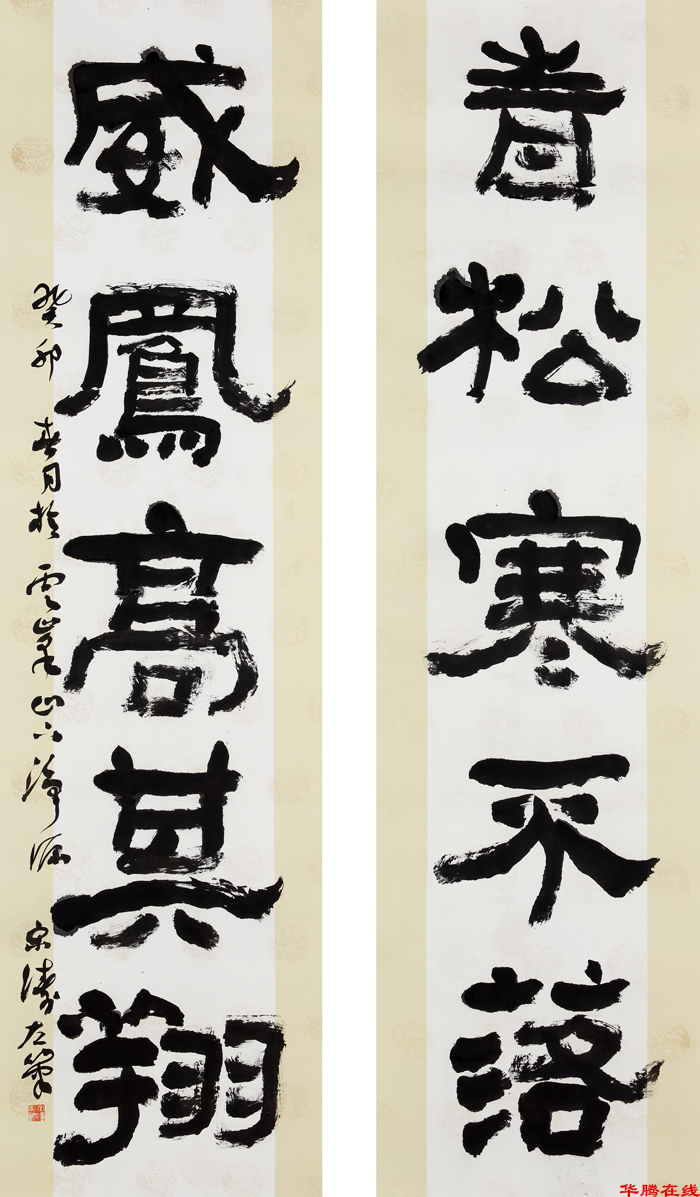 青松寒不落
威鳳高其翔
癸卯春月於雲峯山下淨 宋濤左筆
华腾在线